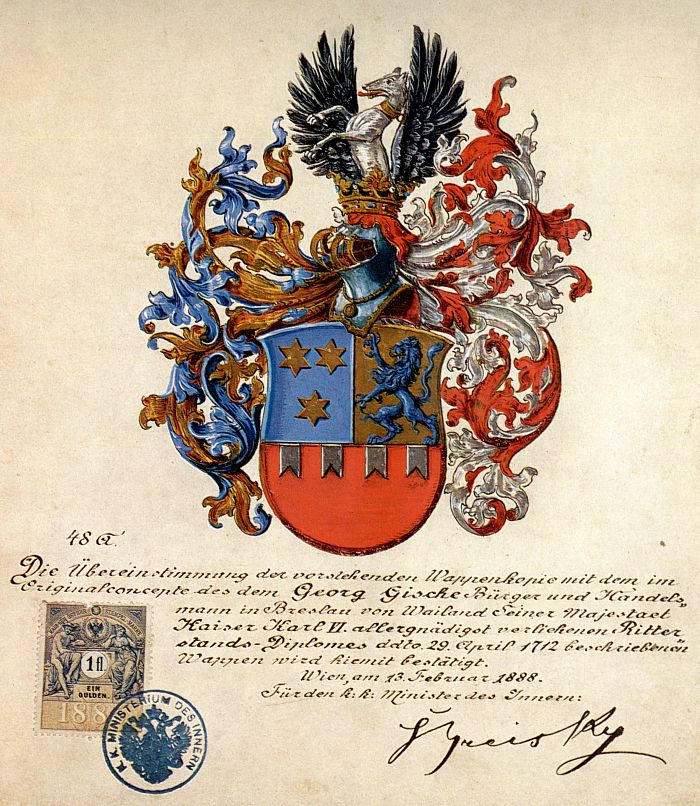 48 G.
Die Übereinstimmung der vorstehenden Wappenkopie mit dem im
Originalconcepte des dem Georg Gische Bürger und Handels-
mann in Breslau von Wailand Seiner Majestaet
Kaiser Karl VI. allergnädigst verliehenen Ritter-
stands-Diplomes ddto. 29. April 1712 beschriebenen
Wappen wird hiemit bestätigt.
Wien, am 13. Februar 1888.
Für den k. k. Minister des Innern:
1 fl
EIN
GULDEN.
188
K. K. MINISTERIUM DES INNERN